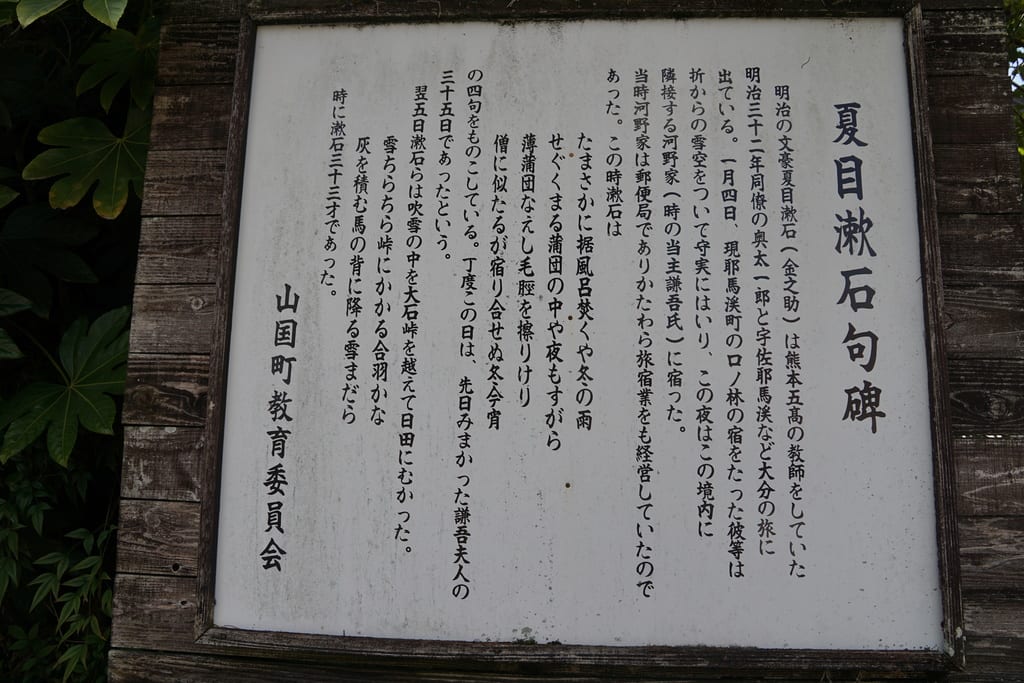 夏目漱石句碑
明治の文豪夏目漱石(金之助)は熊本五高の教師をしていた
明治三十二年同僚の奥太一郎と宇佐耶馬渓など大分の旅に
出ている。一月四日、現耶馬渓町の口ノ林の宿をたった彼等は
折からの雪空をついて守実にはいり、この夜はこの境内に
隣接する河野家(時の当主謙吾氏)に宿った。
当時河野家は郵便局でありかたわら旅宿業をも経営していたので
あった。この時漱石は
たまさかに据風呂焚くや冬の雨
せぐくまる蒲団の中や夜もすがら
薄蒲団なえし毛脛を擦りけり
僧に似たるが宿り合せぬ冬今宵
の四句をものこしている。丁度この日は、先日みまかった謙吾夫人の
三十五日であったという。
翌五日漱石らは吹雪の中を大石峠を越えて日田にむかった。
雪ちらちら峠にかかる合羽かな
灰を積む馬の背に降る雪まだら
時に漱石三十三才であった。
山国町教育委員会